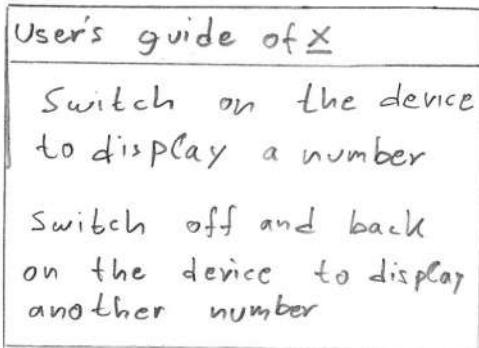 User's guide of X
Switch on the device
to display a number
Switch off and back
on the device to display
another number